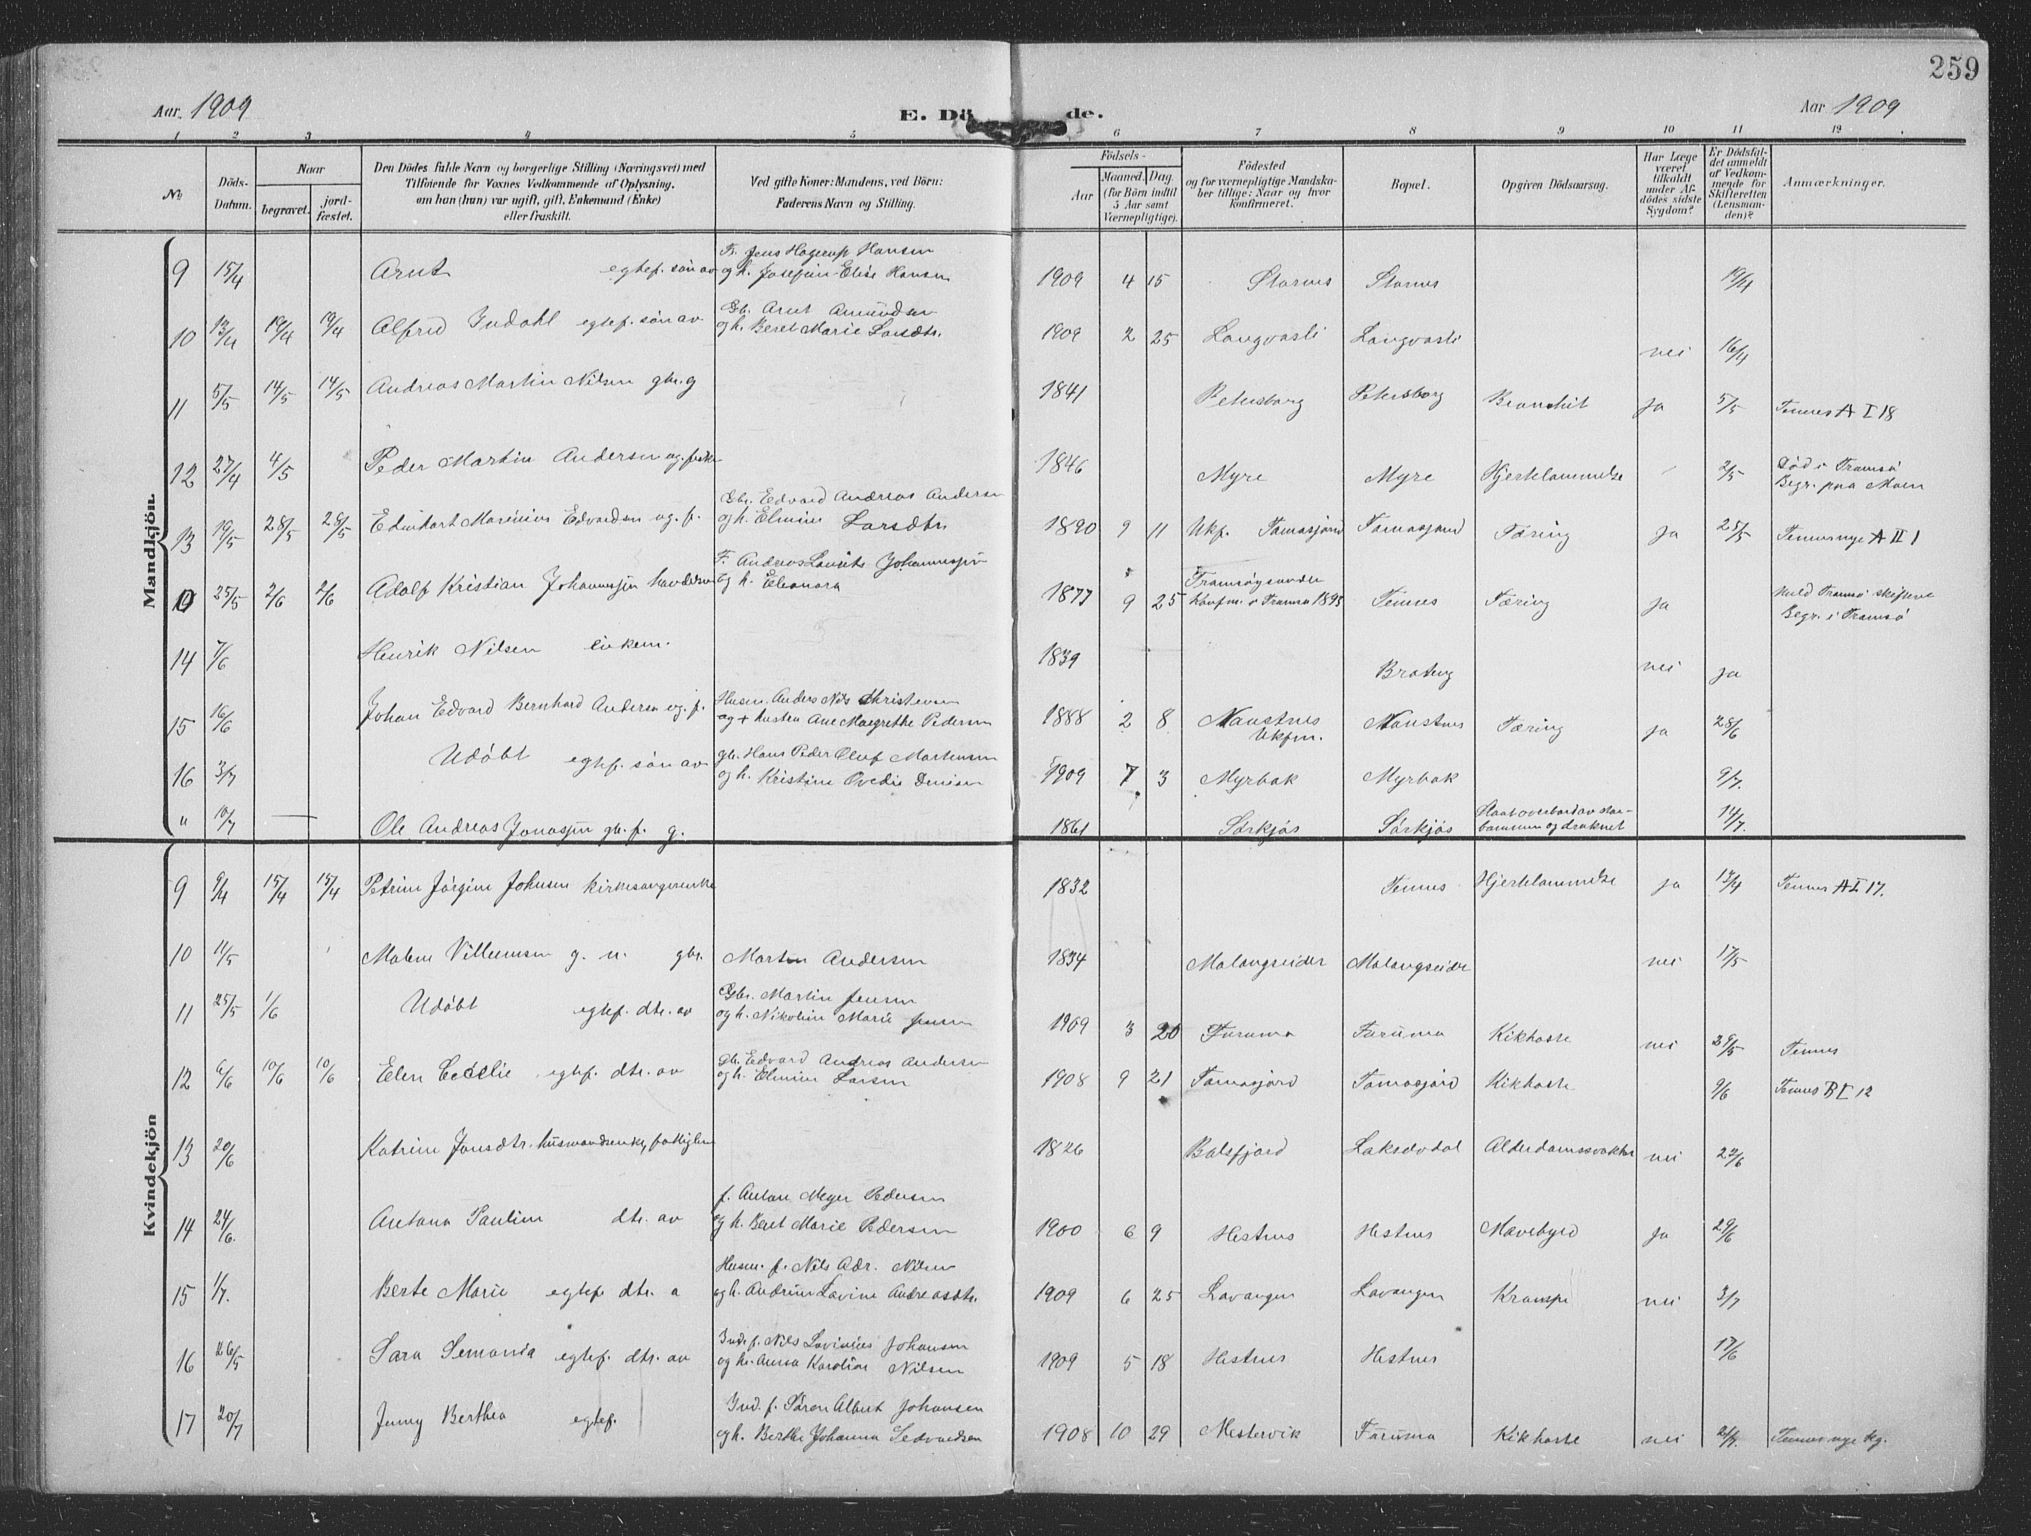 259
Aar. 1909
E. Dö de.
Aar 1909
1 2 3 4 5 6 7 8 9 10 11 12
No.
Döds-Datum.
Naar
begravet.
jord-fæstet.
Den Dödes fulde Navn og borgerlige Stilling (Næringsvei) med
Tilföiende for Voxnes Vedkommende af Oplysning,
om han (hun) var ugift, gift, Enkemand (Enke)
eller fraskilt.
Ved gifte Koner: Mandens, ved Börn:
Faderens Navn og Stilling.
Födsels-
Aar
Maaned. Dag.
(for Börn indtil
5 Aar samt
Værnepligtige).
Födested
og for værnepligtige Mandska-
ber tillige: Naar og hvor
konfirmeret.
Bopæl.
Opgiven Dödsaarsag.
Har Læge
været
tilkaldt
under Af-
dödes sidste
Sygdom?
Er Dödsfal-
det anmeldt
af Vedkom-
mende for
Skifteretten
(Lensman-
den)?
Anmærkninger.
Mandkjön.
F. Jens Hagerup Hansen
9 15/4 Arnt egtef. søn av og h. Josefine Elise Hansen 1909 4 15 Stornes Stornes 19/4
Gbr. Arnt Amundsen
10 13/4 19/4 19/4 Alfred Indahl egtef. søn av og h. Beret Marie Larsdtr. 1909 2 25 Langvasli Langvasli nei 16/4
11 5/5 14/5 14/5 Andreas Martin Nilsen gbr. g 1841 Petersborg Petersborg Bronchit Ja 5/5 Tennes A I 18
12 27/4 4/5 Peder Martin Andersen ug. fisker 1846 Myre Myre Hjertelammelse 2/5 Død i Tromsø
Begr. paa Moen
Gbr. Edvard Andreas Andersen
13 19/5 28/5 28/5 Marinius Edvardsen ug. f. og h. Elmine Larsdtr 1890 9 11 Ukf. Tomasjord Tomasjord Tæring Ja 25/5 Tennes nye A II 1
F. Andreas Lauritz Johannesen
25/5 2/6 2/6 Adolf Kristian og h. Eleonora 1877 9 25 Tromsøysundet
Konfm. i Tromsø Tennes Tæring Ja Meld Tromsø skifteret
Begr. i Tromsø
14 7/6 Henrik Nilsen enkem. 1839 Brateng nei ja
Husm. Anders Nils Christensen
15 16/6 Johan Edvard Bernhard Andersen ug. f. og + hustru Ane Margrethe Pedersen 1888 2 8 Naustnes
Ukfm. Naustnes Tæring ja 28/6
gbr. Hans Peder Oluf Mortensen
16 3/7 Udøbt egtef. søn av og h. Kristine Ovedie Denisen 1909 7 3 Myrbak Myrbak 9/7.
" 10/7 Ole Andreas Jonassen gbr. f. g. 1861 Sørkjos Sørkjos
og druknet 14/7.
Kvindekjön
9 9/4 15/4 15/4 Petrine Jørgine Johnsen kirkesangerenke 1832 Tennes Hjertelammelse ja 13/4 Tennes A I 17.
10 11/5 Malene Villumsen g. gbr. Morten Andersen 1834 Malangseidet Malangseidet nei 17/5
Gbr. Martin Jensen
11 25/5 1/6 Udøbt egtef. dtr. av og h. Nikoline Marie Jensen 1909 3 20 Foruma Foruma Kikhoste nei 29/5 Tennes
gbr. Edvard Andreas Andersen
12 6/6 10/6 10/6 Elen Cecelie egtef. dtr. av og h. Elmine Larsen 1908 9 21 Tomasjord Tomasjord Kikhoste 9/6 Tennes B I 12
13 20/6 Katrine Jonsdtr. husmandsenke, fattiglem 1826 Balsfjord Laksdvdal Alderdomssvakhet nei 22/6
f. Anton Meyer Pedersen
14 24/6. Antona Pauline dtr. av og h. Beret Marie Pedersen 1900 6 9 Hestnes Hestnes Mavebyld Ja 29/6
Husm. f. Nils Adr. Nilsen
15 1/7. Berte Marie egtef dtr. a og h. Andrine Lovine Andreasdtr. 1909 6 25 Lavangen Lavangen Krampe nei 3/7
Ind. f. Nils Johansen
16 26/5 Sara Semania egtef. dtr. av og h. Anna Karoline Nilsen 1909 5 18 Hestnes Hestnes 17/6
Ind. f. Søren Albert Johansen
17 20/7 Jenny Berthea egtef. og h. Berthe Johanna 1908 10 29 Mestervik Foruma Kikhoste nei Tennes nye kg.